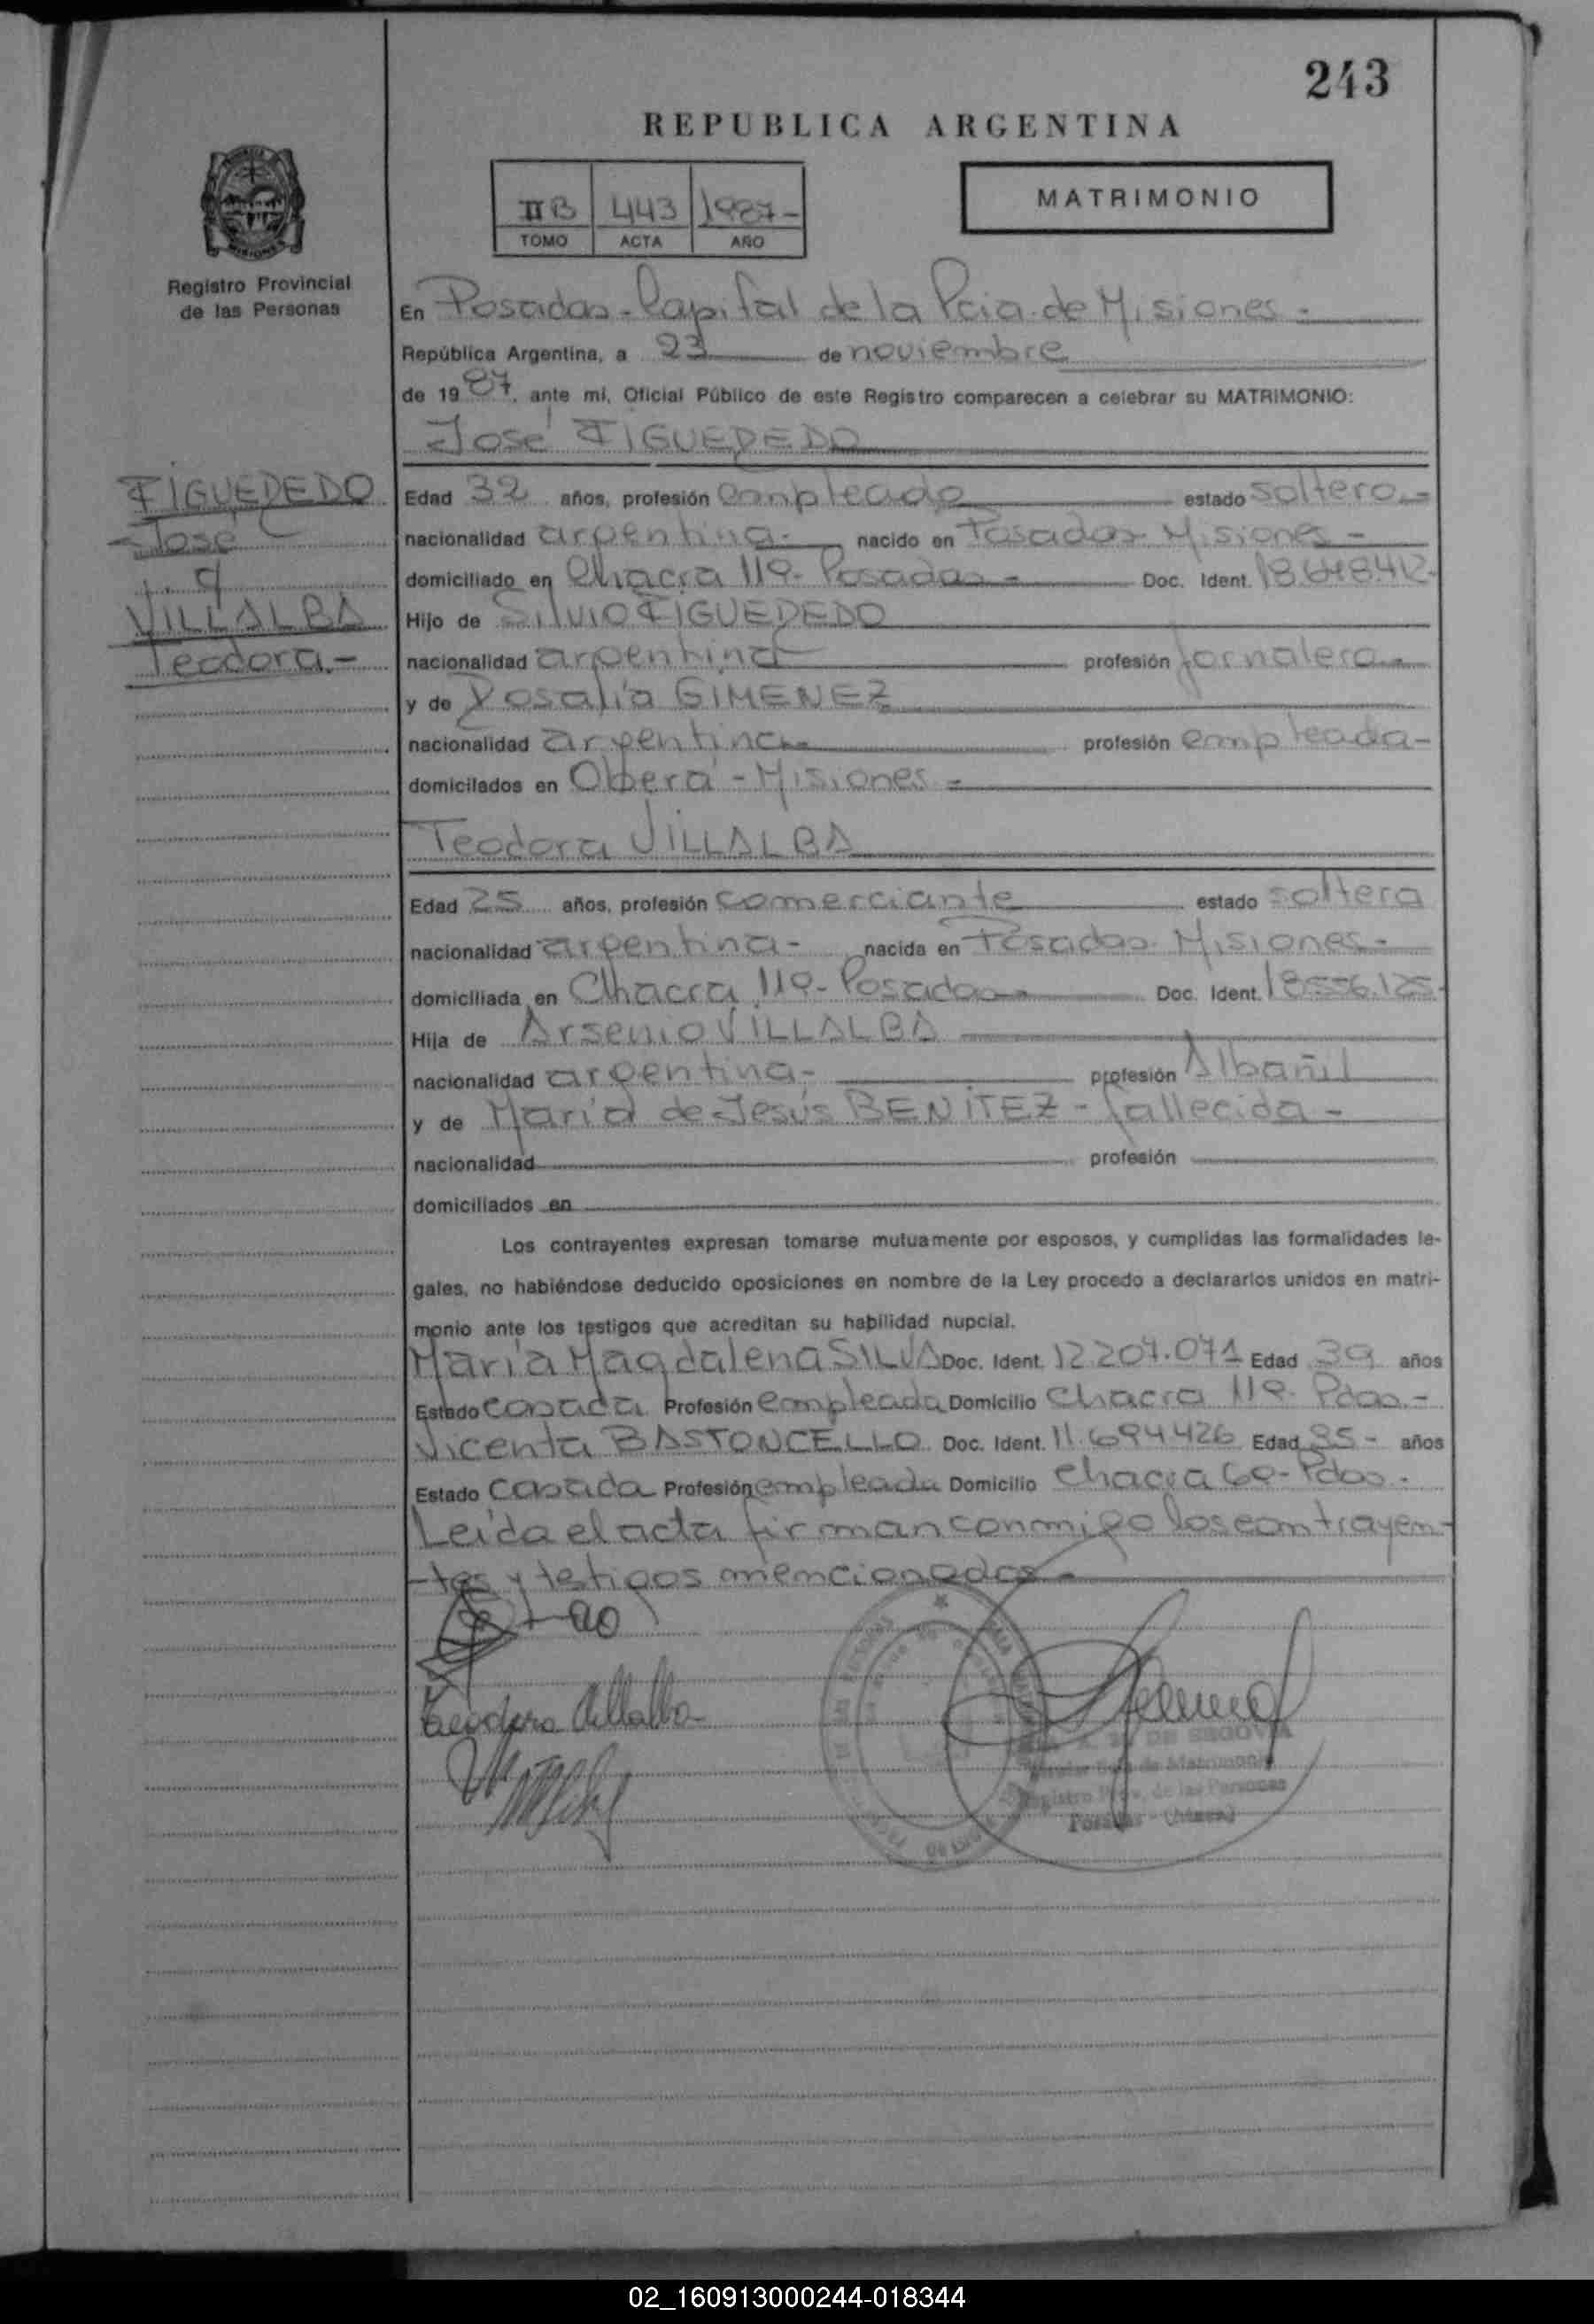 243
REPUBLICA ARGENTINA
IIB 443 1987-
TOMO ACTA AÑO
MATRIMONIO
Registro Provincial
de las Personas
En Posadas-Capital de la Pcia. de Misiones.-
República Argentina, a 23 de noviembre
de 1987, ante mi, Oficial Público de este Registro comparecen a celebrar su MATRIMONIO:
José FIGUEREDO
FIGUEREDO
José
y
VILLALBA
Teodora-
Edad 32 años, profesión empleado estado soltero.-
nacionalidad argentina.- nacido en Posadas-Misiones-
domiciliado en Chacra 119-Posadas- Doc. Ident.
Hijo de Silvio FIGUEREDO
nacionalidad argentina profesión jornalero.-
y de Rosalía GIMENEZ
nacionalidad argentina.- profesión empleada-
domicilados en Oberá-Misiones-
Teodora VILLALBA
Edad 25 años, profesión comerciante estado soltera
nacionalidad argentina- nacida en Posadas-Misiones-
domiciliada en Chacra 119-Posadas- Doc. Ident. 18.556.125-
Hija de Arsenio VILLALBA
nacionalidad argentina- profesión Albañil
y de María de Jesús BENITEZ-fallecida-
nacionalidad profesión
domiciliados en
Los contrayentes expresan tomarse mutuamente por esposos, y cumplidas las formalidades le-
gales, no habiéndose deducido oposiciones en nombre de la Ley procedo a declararlos unidos en matri-
monio ante los testigos que acreditan su habilidad nupcial.
María Magdalena SILVA Doc. Ident. 12.207.071 Edad 39 años
Estado casada Profesión empleada Domicilio Chacra 119-Pdas.-
Vicenta BASTONCELLO Doc. Ident. 11.694.426 Edad 35- años
Estado casada Profesión empleada Domicilio Chacra 60-Pdas.-
Leída el acta firman conmigo los contrayen-
-tes y testigos mencionados-
Teodora Villalba
DE SEGOVIA
de Matrimonio
Registro Prov. de las Personas
Posadas - (Mnes)
02_160913000244-018344